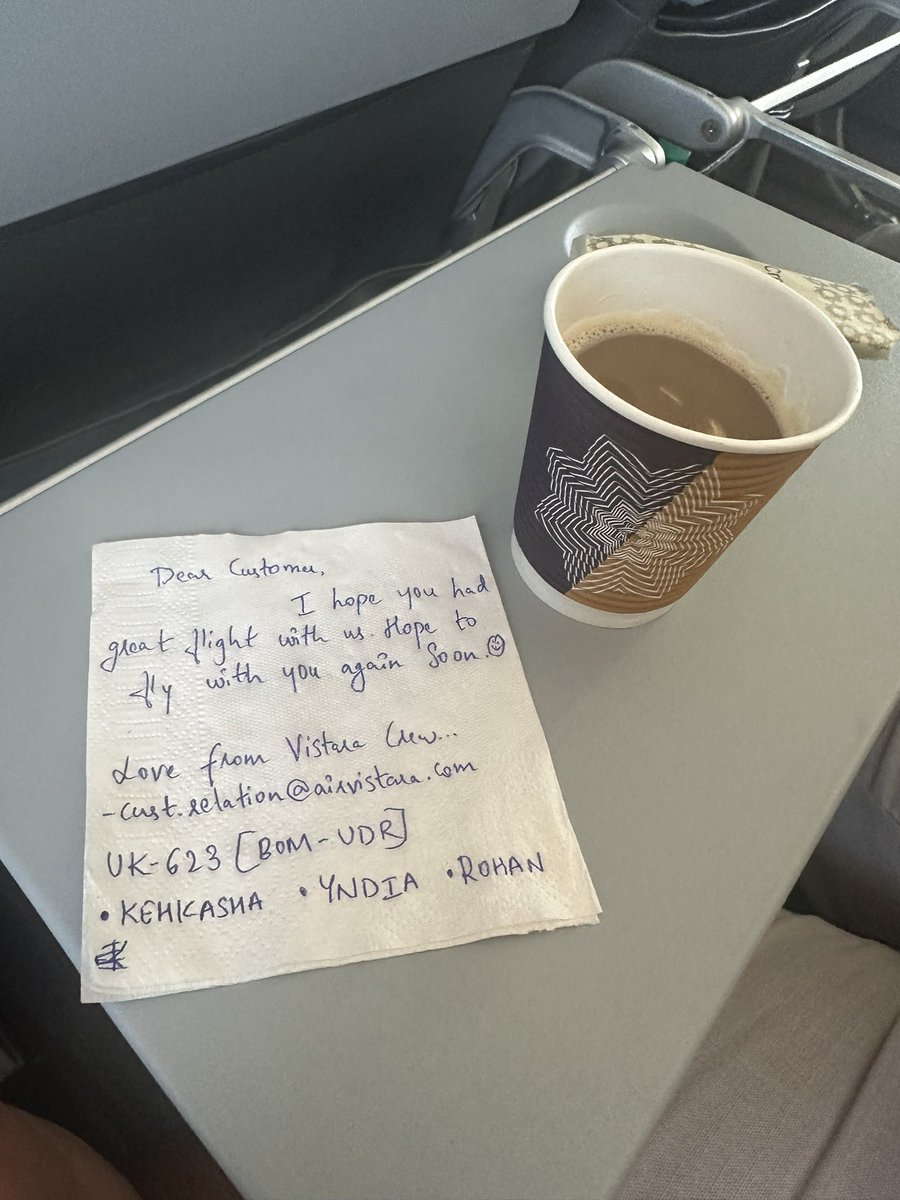 Dear Customer,
I hope you had
great flight with us. Hope to
fly with you again Soon.☺
Love from Vistara Crew...
-cust.relation@airvistara.com
UK-623 [BOM-UDR]
• KEHKASHA • YNDIA • ROHAN